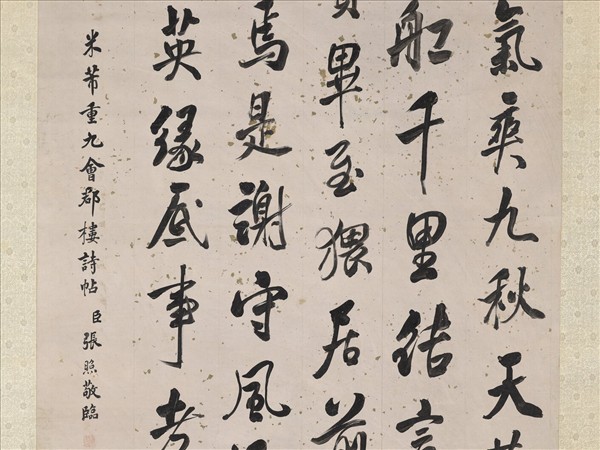 氣爽九秋天
舡千里結言
賢畢至猥居前
焉是謝守風
英緣底事老
米芾重九會郡樓詩帖 臣張照敬臨